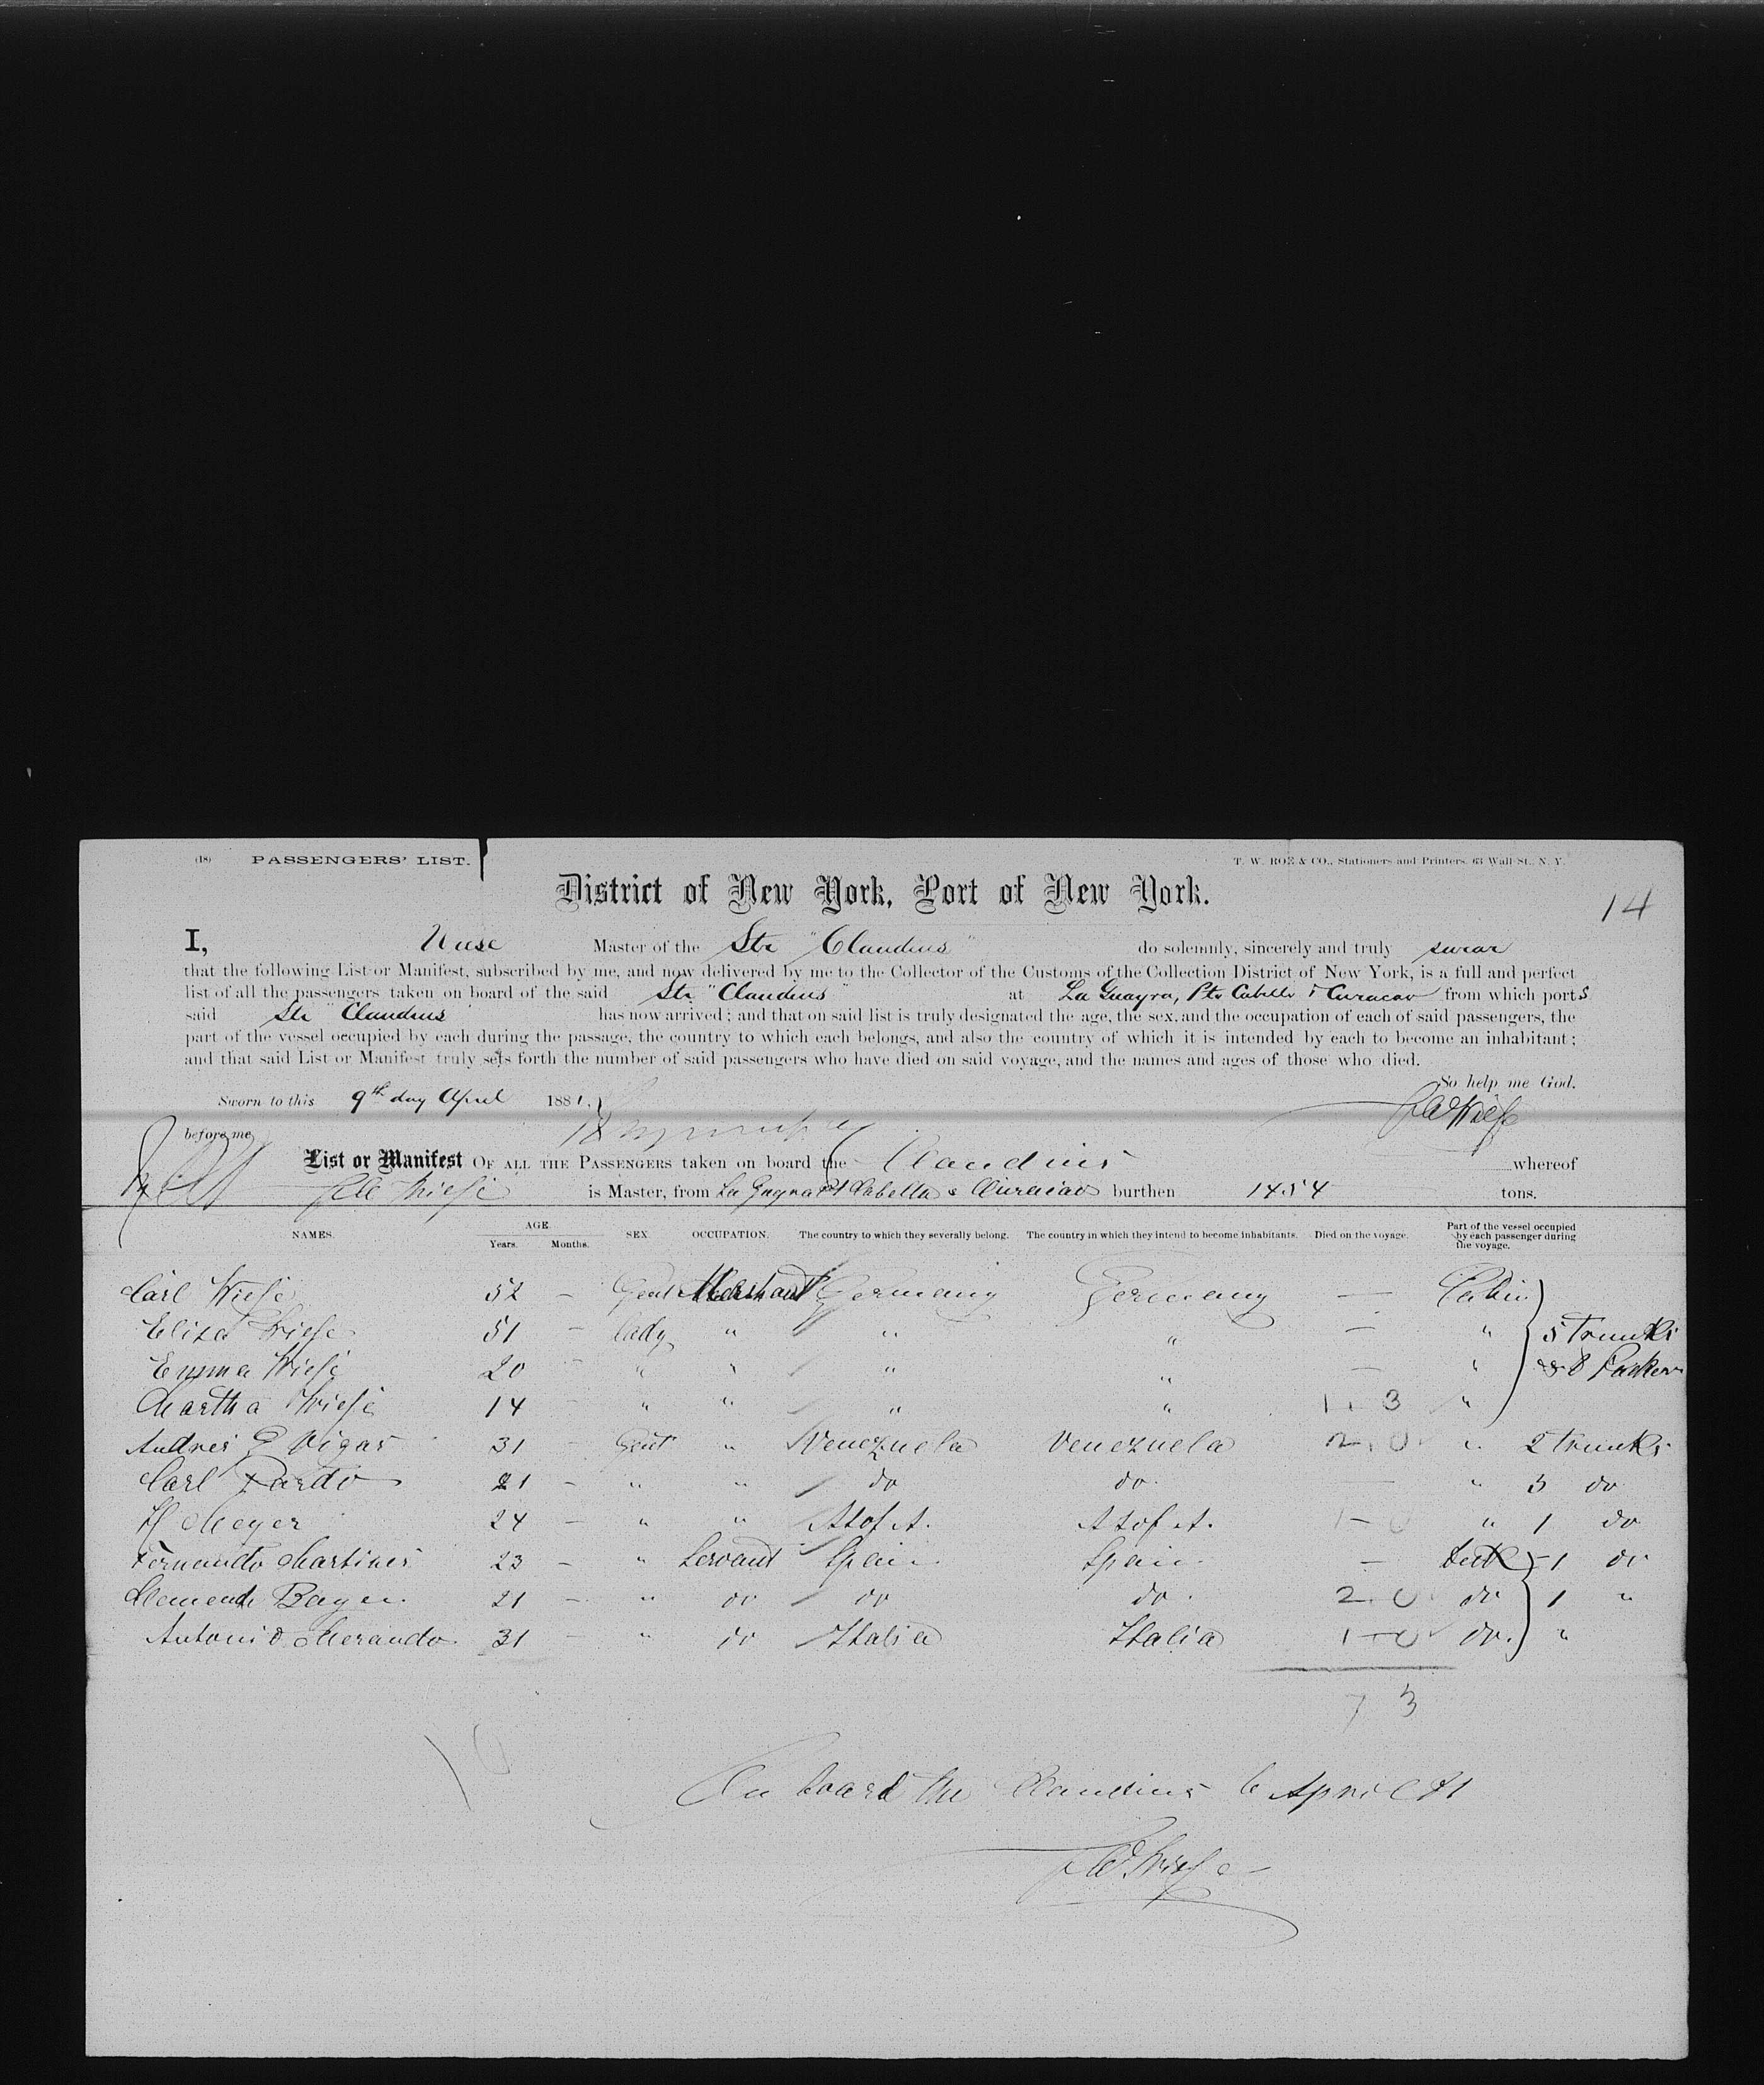 (18) PASSENGERS' LIST.
T. W. ROE & CO., Stationers and Printers, 63 Wall St., N. Y.
District of New York, Port of New York.
14
I, Master of the Str "Claudius" do solemnly, sincerely and truly swear
that the following List or Manifest, subscribed by me, and now delivered by me to the Collector of the Customs of the Collection District of New York, is a full and perfect
list of all the passengers taken on board of the said Str. "Claudius" at La Guayra, Pto Cabello & Curacao from which ports
said Str "Claudius has now arrived; and that on said list is truly designated the age, the sex, and the occupation of each of said passengers, the
part of the vessel occupied by each during the passage, the country to which each belongs, and also the country of which it is intended by each to become an inhabitant;
and that said List or Manifest truly sets forth the number of said passengers who have died on said voyage, and the names and ages of those who died.
So help me God.
Sworn to this 9th day April 1881,
Wiese
before me
List or Manifest OF ALL THE PASSENGERS taken on board the Claudius whereof
Wiese is Master, from La Guyra Pt Cabello & Curacao burthen 1454 tons.
NAMES. AGE. Years. Months. SEX. OCCUPATION. The country to which they severally belong. The country in which they intend to become inhabitants. Died on the voyage. Part of the vessel occupied by each passenger during the voyage.
Carl Wiese 52 – Gent Merchant Germany Germany — Cabin
Eliza Wiese 51 – lady " " " — " 5 Trunks
Emma Wiese 20 – " " " " — " & 8
Martha Wiese 14 – " " " " 1 . 3 "
Andres G Vigas 31 – Gent " Venezuela Venezuela 2 . 0 " 2 trunks
Carl Pardo 21 – " " do do. — " 3 do
H Meyer 24 – " " U St of A. U St of A. 1 – 0 " 1 do
Fernando Martines 23 – " Servant Spain Spain – – 1 do
Clemente Bayer. 21 – " do do do. 2 . 0 do 1 "
Antonio Merando 31 – " do Italia Italia 1 – 0 do. "
7 3
10
On board the Claudius 6 April 81
Wiese